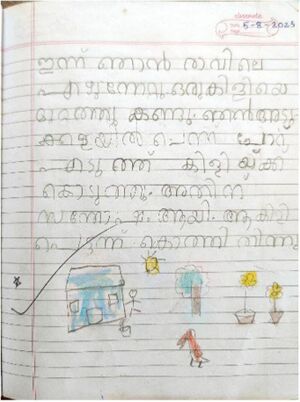 classmate
5-8-2023
ഇന്ന് ഞാൻ രാവിലെ
എഴുന്നേറ്റു ഒരു കിളിയെ
കണ്ടു ഞാൻ അടു
ക്കളയിൽ ചെന്ന് ചോറു
എടുത്ത് കിളിയ്ക്ക്
കൊടുത്തു. അതിന്
സന്തോഷം ആയി. ആ കിളി
കൊത്തി തിന്നു